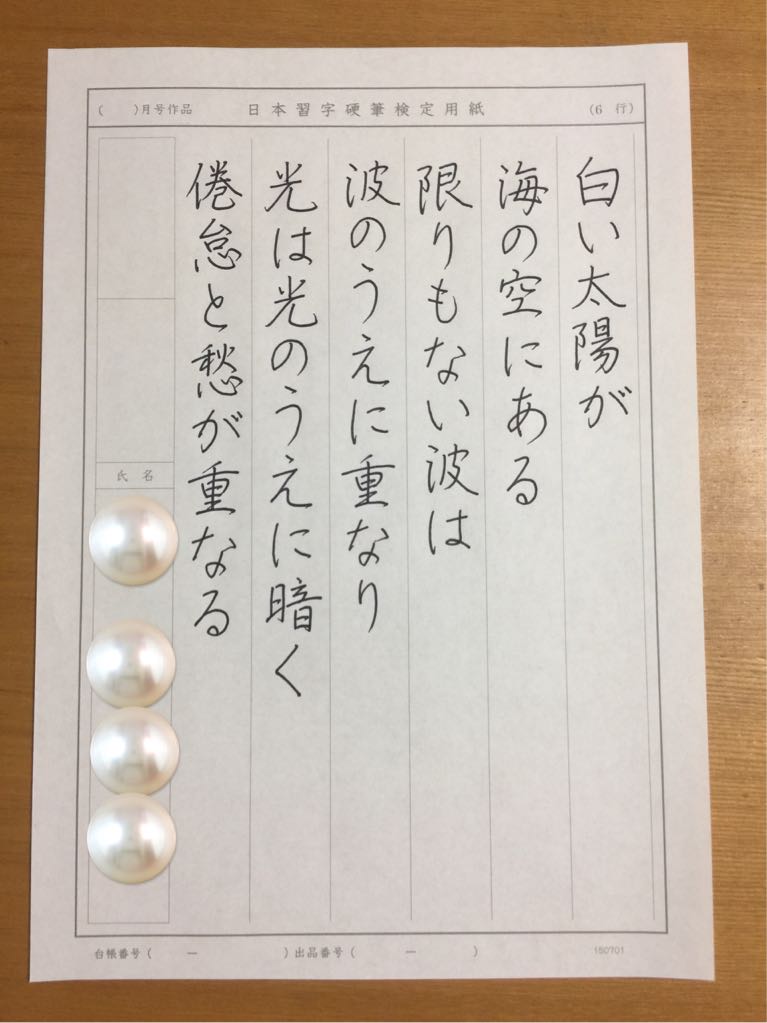 ( )月号作品 日本習字硬筆検定用紙 (6 行)
白い太陽が
海の空にある
限りもない波は
波のうえに重なり
光は光のうえに暗く
倦怠と愁が重なる
氏名
台帳番号( ー )出品番号( ー ) 150701